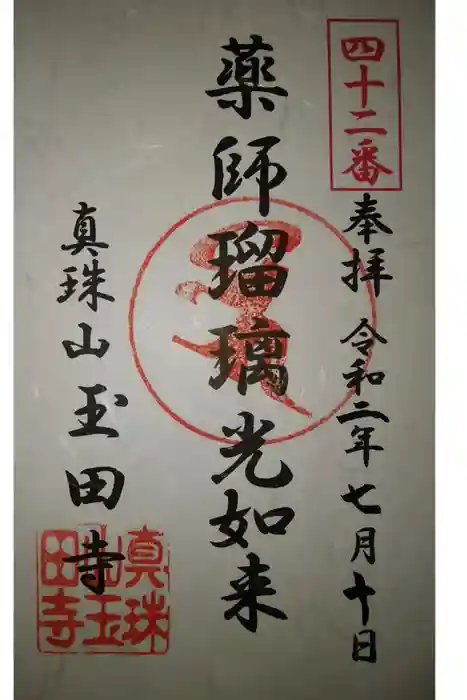 四十二番
奉拝 令和二年七月十日
薬師瑠璃光如来
真珠山玉田寺
真珠
山玉
田寺